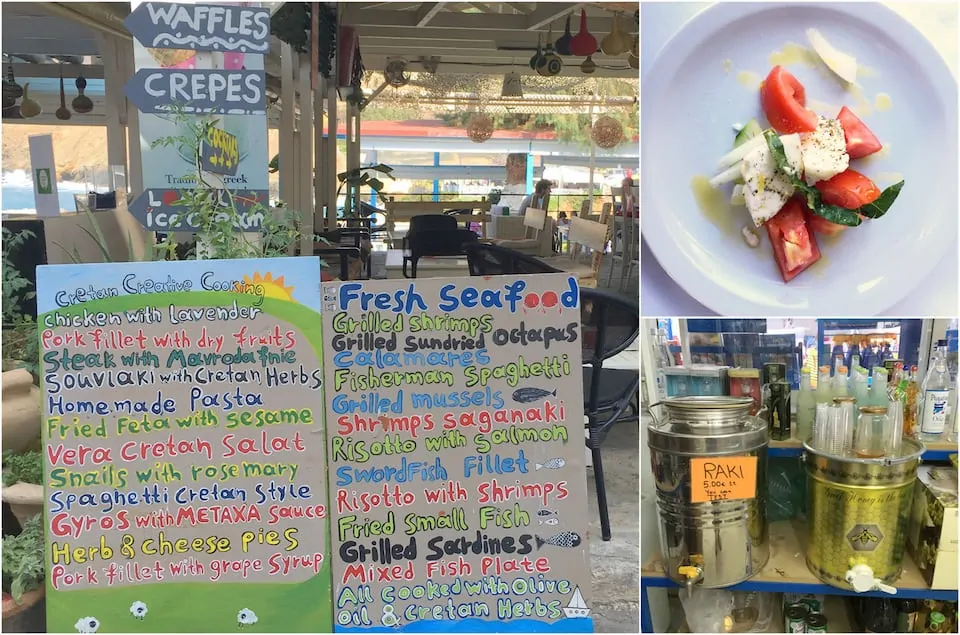 WAFFLES
CREPES
greek
ice cream
Cretan Creative Cooking
chicken with lavender
Pork fillet with dry fruits
Steak with Mavrodafnie
Souvlaki with Cretan Herbs
Homemade Pasta
Fried Feta with sesame
Vera Cretan Salat
Snails with rosemary
Spaghetti Cretan Style
Gyros with METAXA Sauce
Herb & cheese pies
Pork fillet with grape Syrup
Fresh Seafood
Grilled shrimps
Grilled Sundried Octapus
Calamares
Fisherman Spaghetti
Grilled mussels
Shrimps saganaki
Risotto with Salmon
SwordFish Fillet
Risotto with Shrimps
Fried Small Fish
Grilled Sardines
Mixed Fish Plate
All Cooked with Olive
Oil & Cretan Herbs
RAKI
5.00€ Lt
You can
TEST